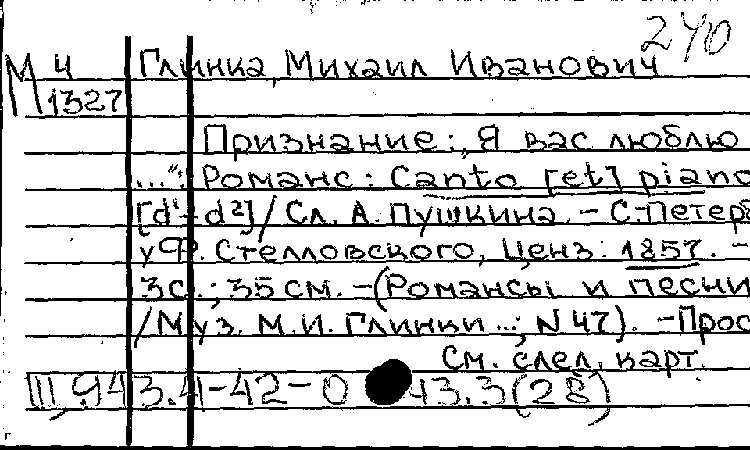 240
М 4 Глинка, Михаил Иванович
1327
Признание: „Я вас люблю
...“: Романс: Canto [et] piano
[d¹-d²] / Сл. А. Пушкина. - С.-Петерб
у Ф. Стелловского, Ценз. 1857. -
3 с.; 35 см. - (Романсы и песни
/ Муз. М.И. Глинки...; N 47). - Прос
См. след. карт.
III, 943.4-42-0 43.3(28)